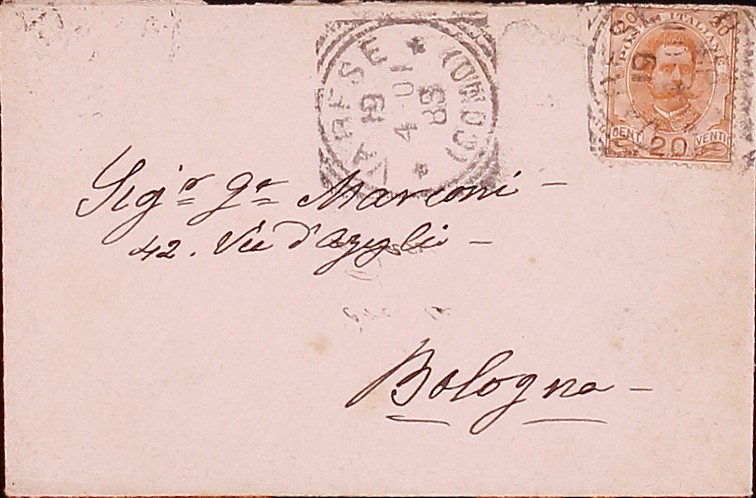 VARESE (COMO)
19
4-01
8S
20 20
POSTE ITALIANE
CENT. 20 VENTI
Sigr gr Marconi –
42. Via d'Azeglio –
Bologna –